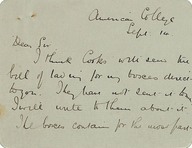 American College
Sept. 14
Dear Sir
I think Cooks will send the
bill of lading for my boxes direct
to you. They have not sent it to me
I will write to them about it
The boxes contain for the most part